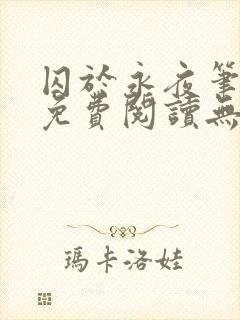 囚於永夜筆
免費閱讀無
瑪卡洛娃